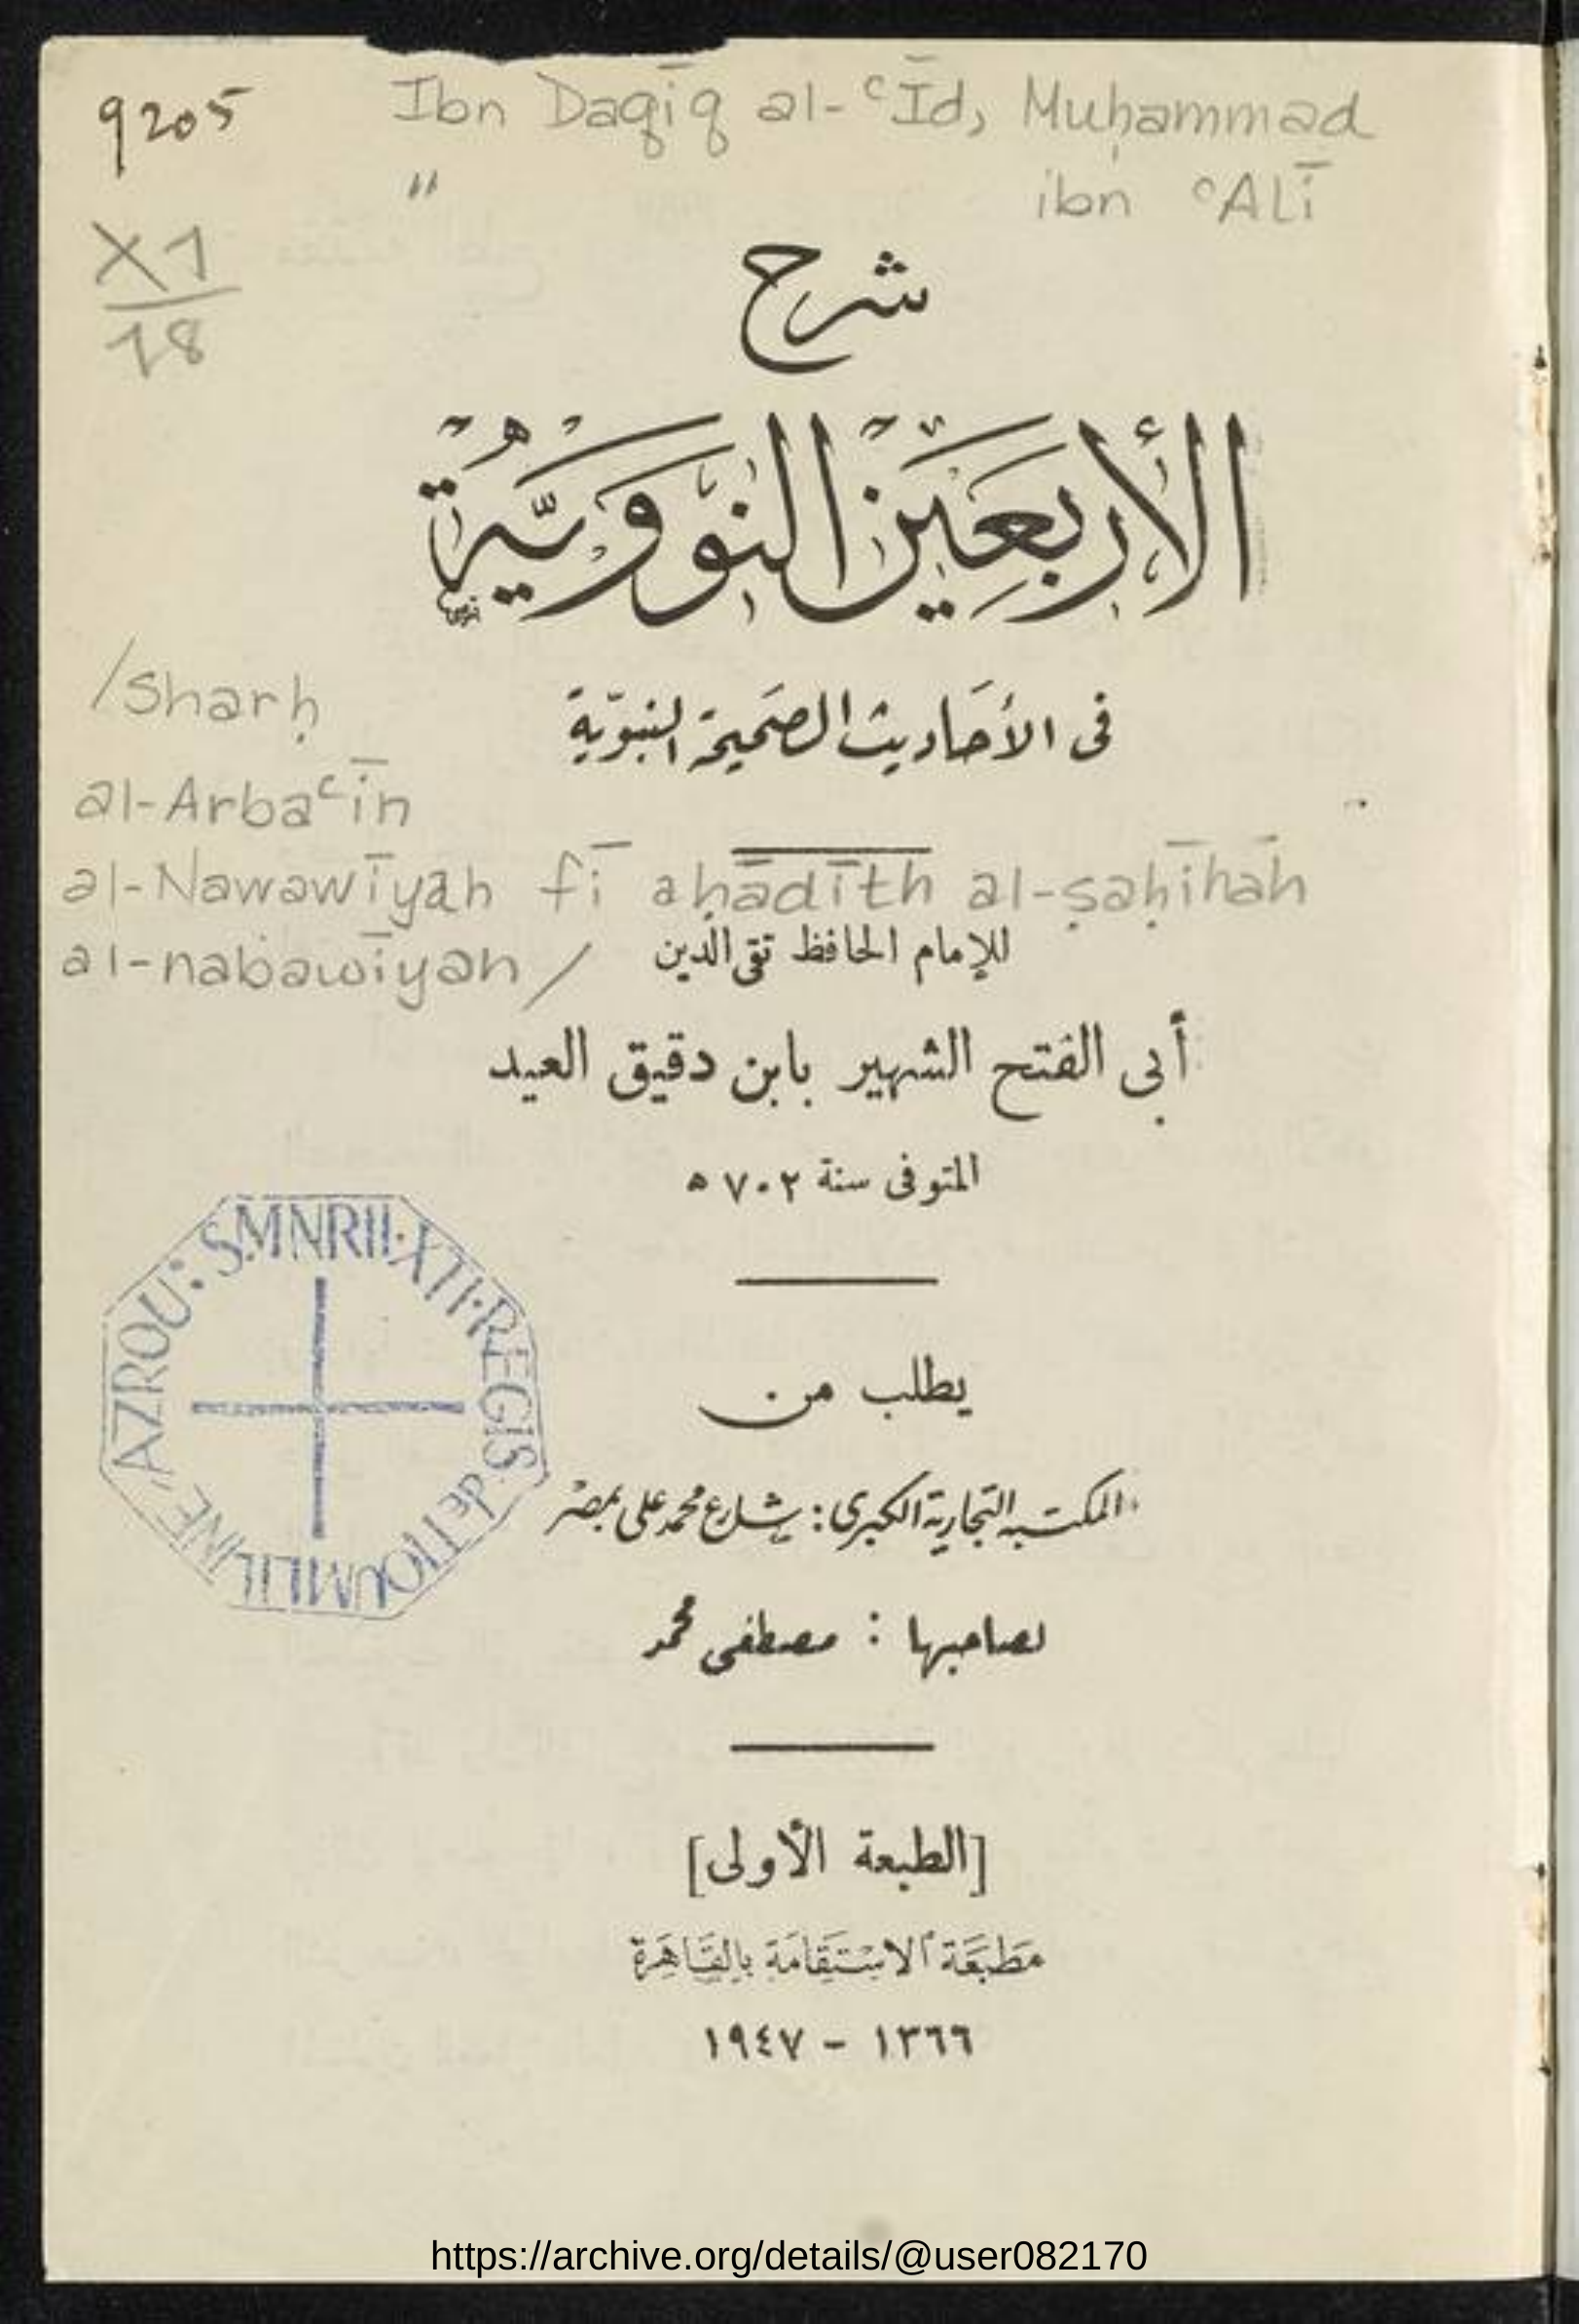 9205 Ibn Daqīq al-ʿĪd, Muḥammad
" ibn ʿAlī
X1
18
شرح
الأربعين النووية
فى الأحاديث الصحيحة النبوية
/Sharḥ
al-Arbaʿīn
al-Nawawīyah fī aḥādīth al-ṣaḥīhah
al-nabawīyah/
للإمام الحافظ تقى الدين
أبى الفتح الشهير بابن دقيق العيد
المتوفى سنة ٧٠٢ ه
AZROU: S.MNRII·XTI·REGIS·
يطلب من
المكتبة التجارية الكبرى: شارع محمد على بمصر
لصاحبها : مصطفى محمد
[الطبعة الأولى]
مطبعة الاستقامة بالقاهرة
١٣٦٦ - ١٩٤٧
https://archive.org/details/@user082170